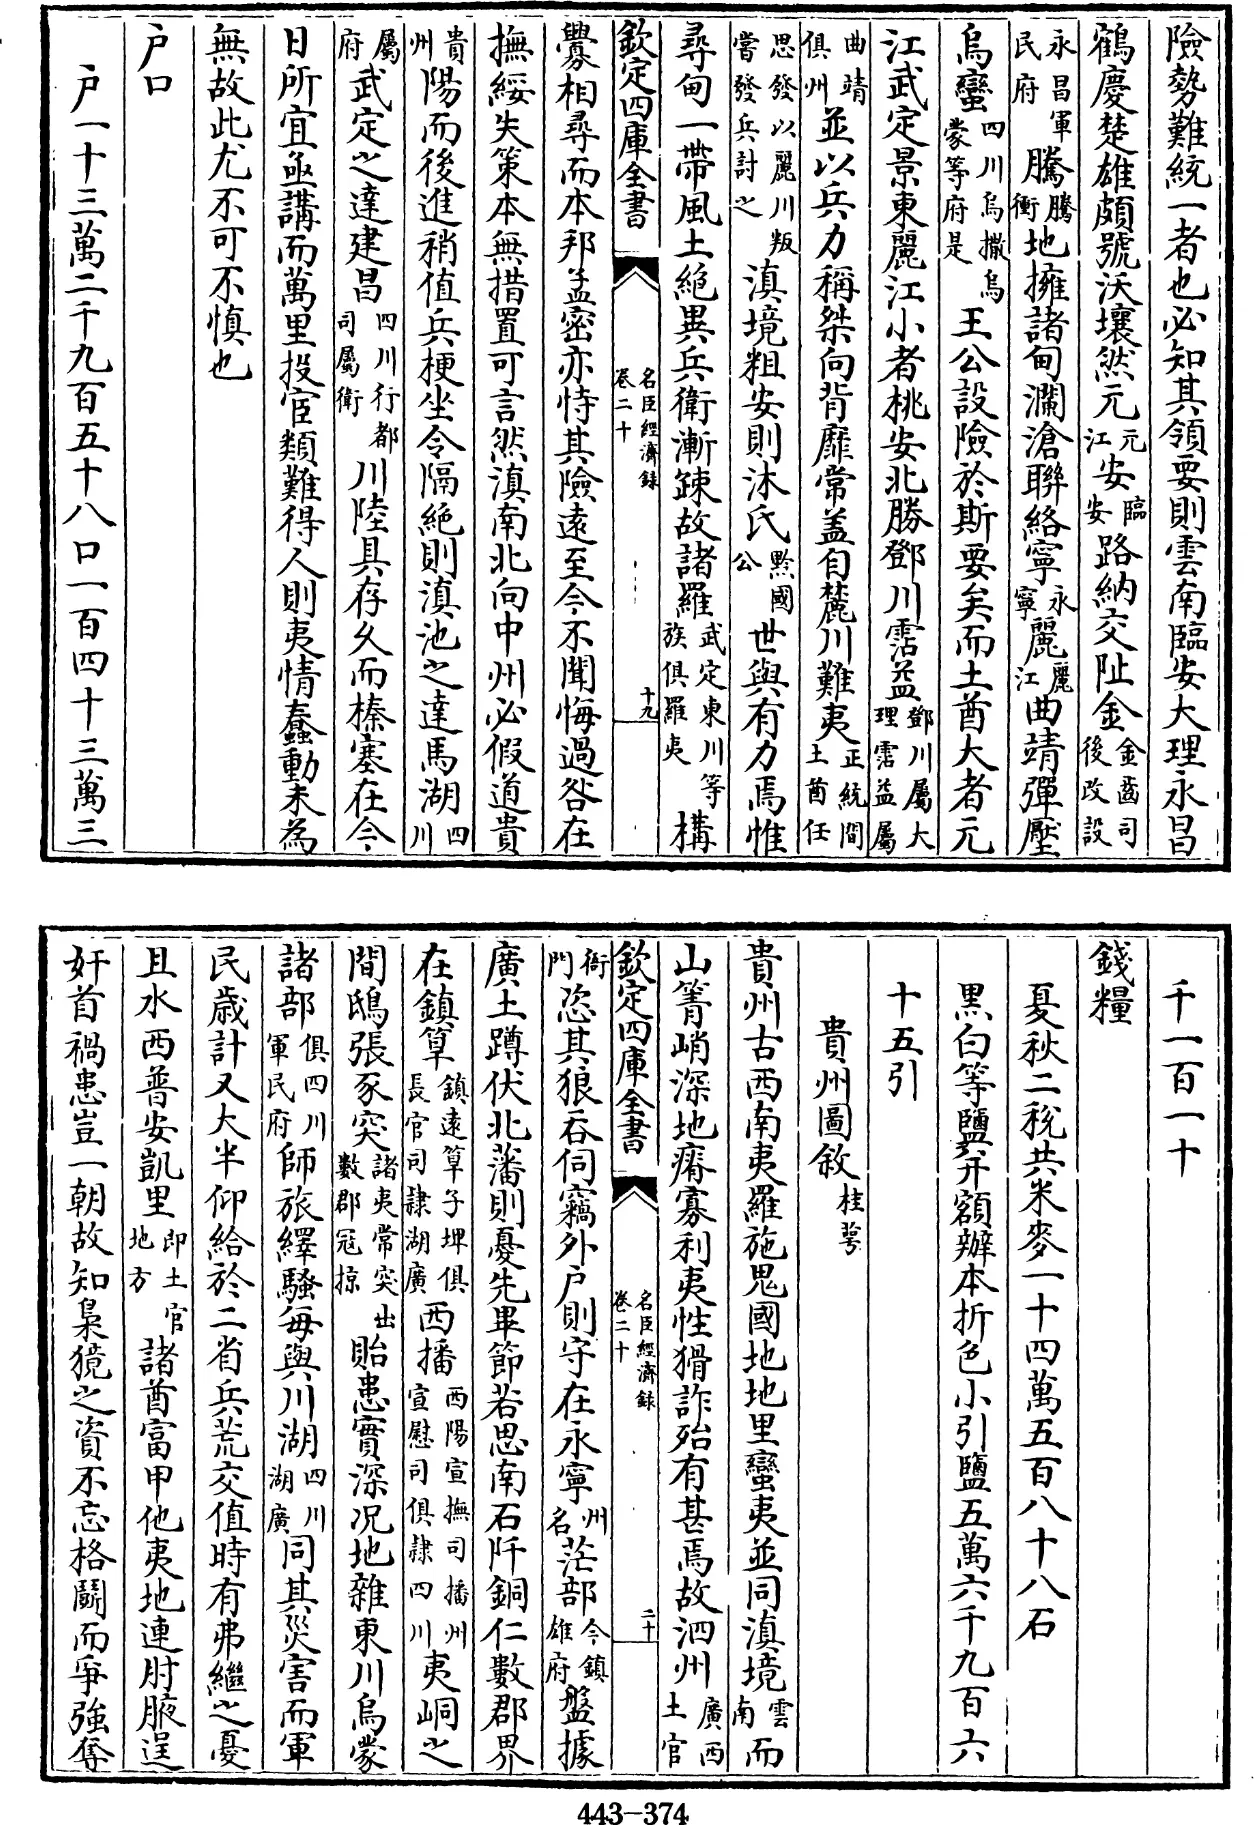 險勢難統一者也必知其領要則雲南臨安大理永昌
鶴慶楚雄頗號沃壤然元元江安臨安路納交阯金金齒司後改設
永昌軍民府騰騰衝地擁諸甸瀾滄聯絡寧永寧麗麗江曲靖彈壓
烏蠻四川烏撒烏蒙等府是王公設險於斯要矣而土酋大者元
江武定景東麗江小者桃安北勝鄧川霑益鄧川屬大理霑益屬
曲靖俱州並以兵力稱桀向背靡常盖自麓川難夷正統間土酋任
思發以麗川叛嘗發兵討之滇境粗安則沐氏黔國公世與有力焉惟
尋甸一帶風土絕異兵衛漸踈故諸羅武定東川等族俱羅夷構
欽定四庫全書
名臣經濟録
卷二十
十九
釁相尋而本邦孟密亦恃其險遠至今不聞悔過咎在
撫綏失策本無措置可言然滇南北向中州必假道貴
貴州陽而後進稍值兵梗坐令隔絕則滇池之達馬湖四川
屬府武定之達建昌四川行都司屬衛川陸具存久而榛塞在今
日所宜亟講而萬里投宦類難得人則夷情蠢動未為
無故此尤不可不慎也
户口
户一十三萬二千九百五十八口一百四十三萬三
千一百一十
錢糧
夏秋二稅共米麥一十四萬五百八十八石
黑白等鹽井額辦本折色小引鹽五萬六千九百六
十五引
貴州圖敘桂萼
貴州古西南夷羅施鬼國地地里蠻夷並同滇境雲南而
山箐峭深地瘠寡利夷性獷詐殆有甚焉故泗州廣西土官
欽定四庫全書
名臣經濟録
卷二十
二十
衙門恣其狼吞伺竊外户則守在永寧州名茫部今鎮雄府盤據
廣土蹲伏北藩則憂先畢節若思南石阡銅仁數郡界
在鎮筸鎮遠筸子埤俱長官司隷湖廣西播酉陽宣撫司播州宣慰司俱隷四川夷峒之
間鴟張豕突諸夷常突出數郡冦掠貽患實深况地雜東川烏蒙
諸部俱四川軍民府師旅繹騷每與川湖四川湖廣同其災害而軍
民歲計又大半仰給於二省兵荒交值時有弗繼之憂
且水西普安凱里即土官地方諸酋富甲他夷地連肘腋逞
奸首禍患豈一朝故知梟獍之資不忘格鬬而爭強奪
443-374